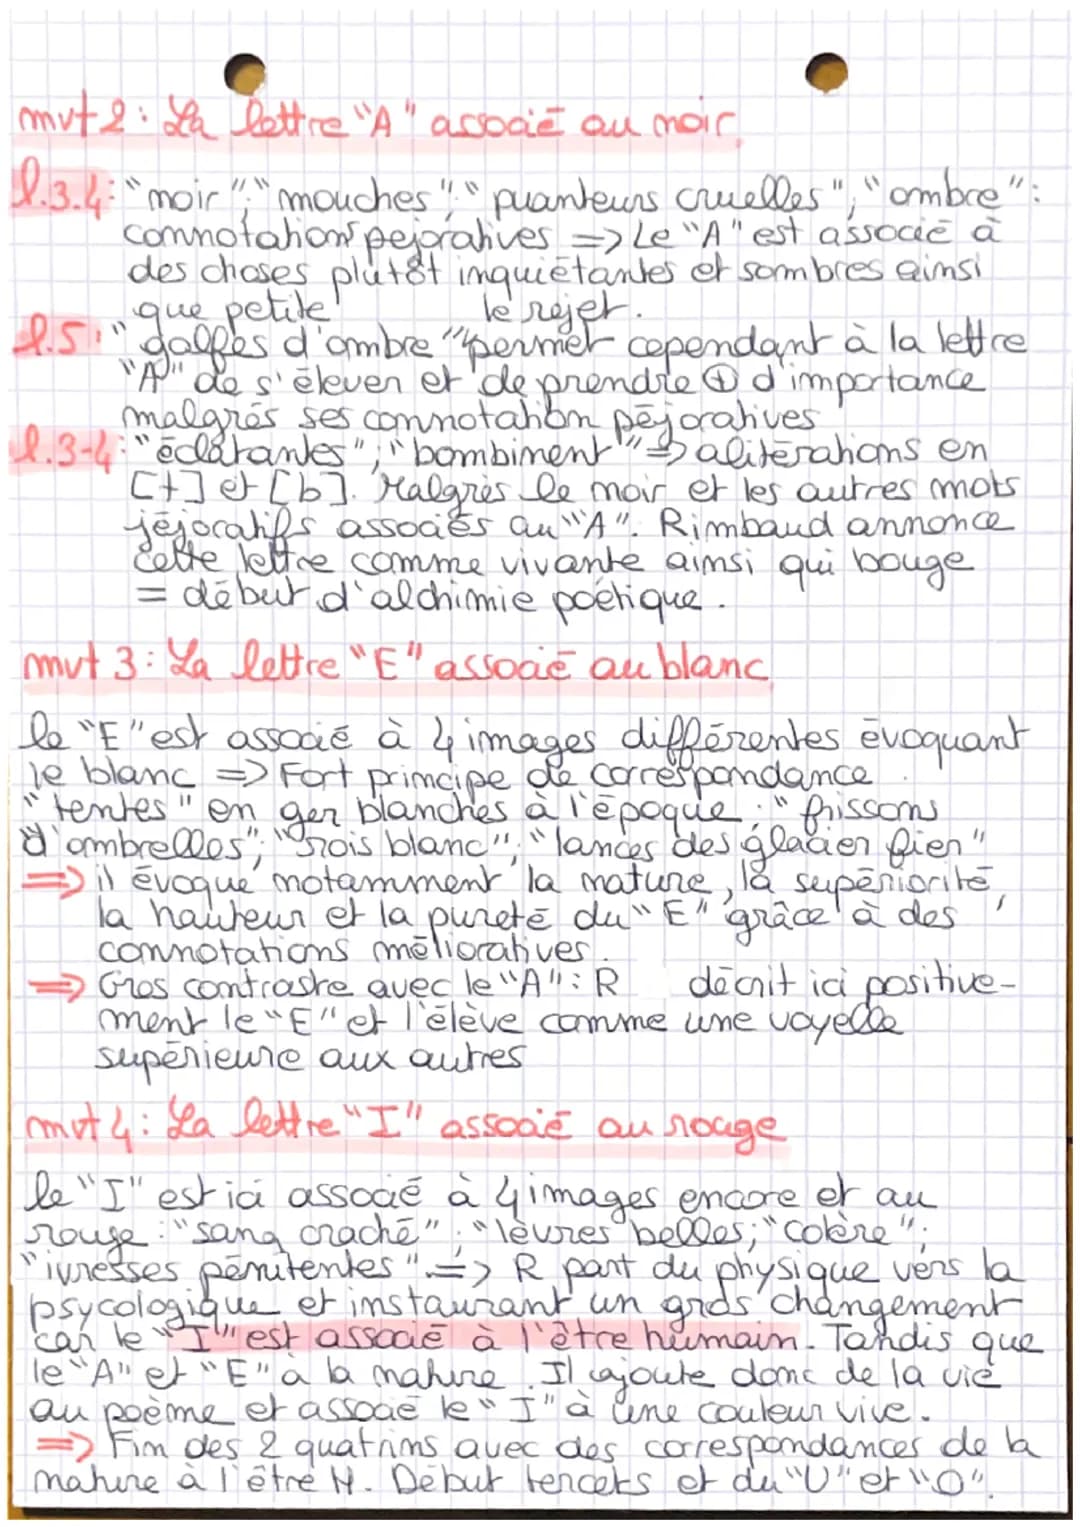 mvt 2 : La lettre "A" associé au noir
l.3.4 : "noir" ; "mouches" ; "puanteurs cruelles" ; "ombre" :
connotations pejoratives => Le "A" est associé à
des choses plutôt inquiétantes et sombres ainsi
que petite le rejet.
l.5 : "golfes d'ombre" permet cependant à la lettre
"A" de s'élever et de prendre ⊕ d'importance
malgrés ses connotation péjoratives
l.3-4 : "éclatantes" ; "bombinent" => alitérations en
[t] et [b]. Malgrès le noir et les autres mots
jéjoratifs associés au "A". Rimbaud annonce
cette lettre comme vivante ainsi qui bouge
= début d'alchimie poétique.
mvt 3 : La lettre "E" associé au blanc
le "E" est associé à 4 images différentes évoquant
le blanc => Fort principe de correspondance.
"tentes" en ger blanches à l'époque ; "frissons
d'ombrelles" ; "rois blanc" ; "lances des glacier fier"
=> il évoque notamment la nature, la supériorité,
la hauteur et la pureté du "E" grâce à des
connotations mélioratives.
=> Gros contrastre avec le "A" : R décrit ici positive-
ment le "E" et l'élève comme une voyelle
supérieure aux autres
mvt 4 : La lettre "I" associé au rouge
le "I" est ici associé à 4 images encore et au
rouge : "sang craché" ; "lèvres belles ; "colère" ;
"ivresses pénitentes" => R part du physique vers la
psycologique et instaurant un gros changement
car le "I" est associé à l'être humain. Tandis que
le "A" et "E" à la nature. Il ajoute donc de la vie
au poème et associé le "I" à une couleur vive.
=> Fin des 2 quatrins avec des correspondances de la
nature à l'être H. Début tercets et du "U" et "O".